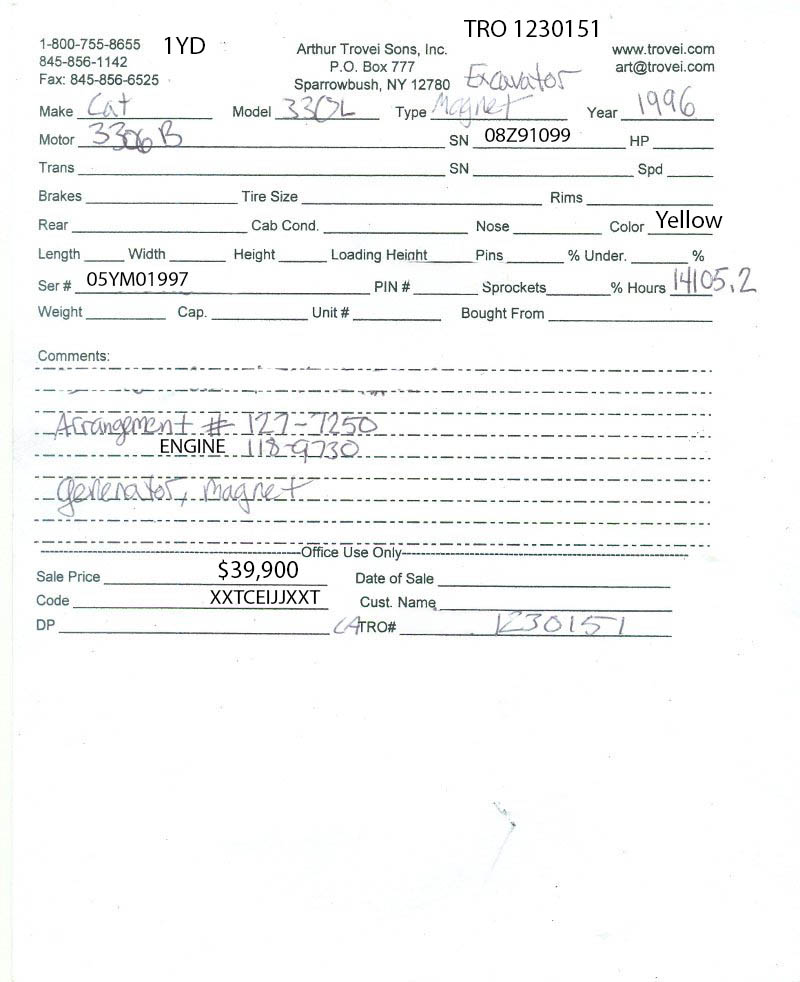 TRO 1230151
1-800-755-8655 1YD Arthur Trovei Sons, Inc. www.trovei.com
845-856-1142 P.O. Box 777 art@trovei.com
Fax: 845-856-6525 Sparrowbush, NY 12780 Excavator
Make Cat Model 330L Type Magnet Year 1996
Motor 3306B SN 08Z91099 HP
Trans SN Spd
Brakes Tire Size Rims
Rear Cab Cond. Nose Color Yellow
Length Width Height Loading Height Pins % Under. %
Ser # 05YM01997 PIN # Sprockets % Hours 14105.2
Weight Cap. Unit # Bought From
Comments:
Arrangement # 127-7250
ENGINE 118-9730
generator, magnet
Office Use Only
Sale Price $39,900 Date of Sale
Code XXTCEIJJXXT Cust. Name
DP CATRO# 1230151